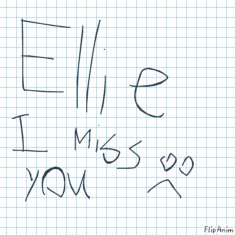 Ellie
I MISS
YOU
FlipAnim